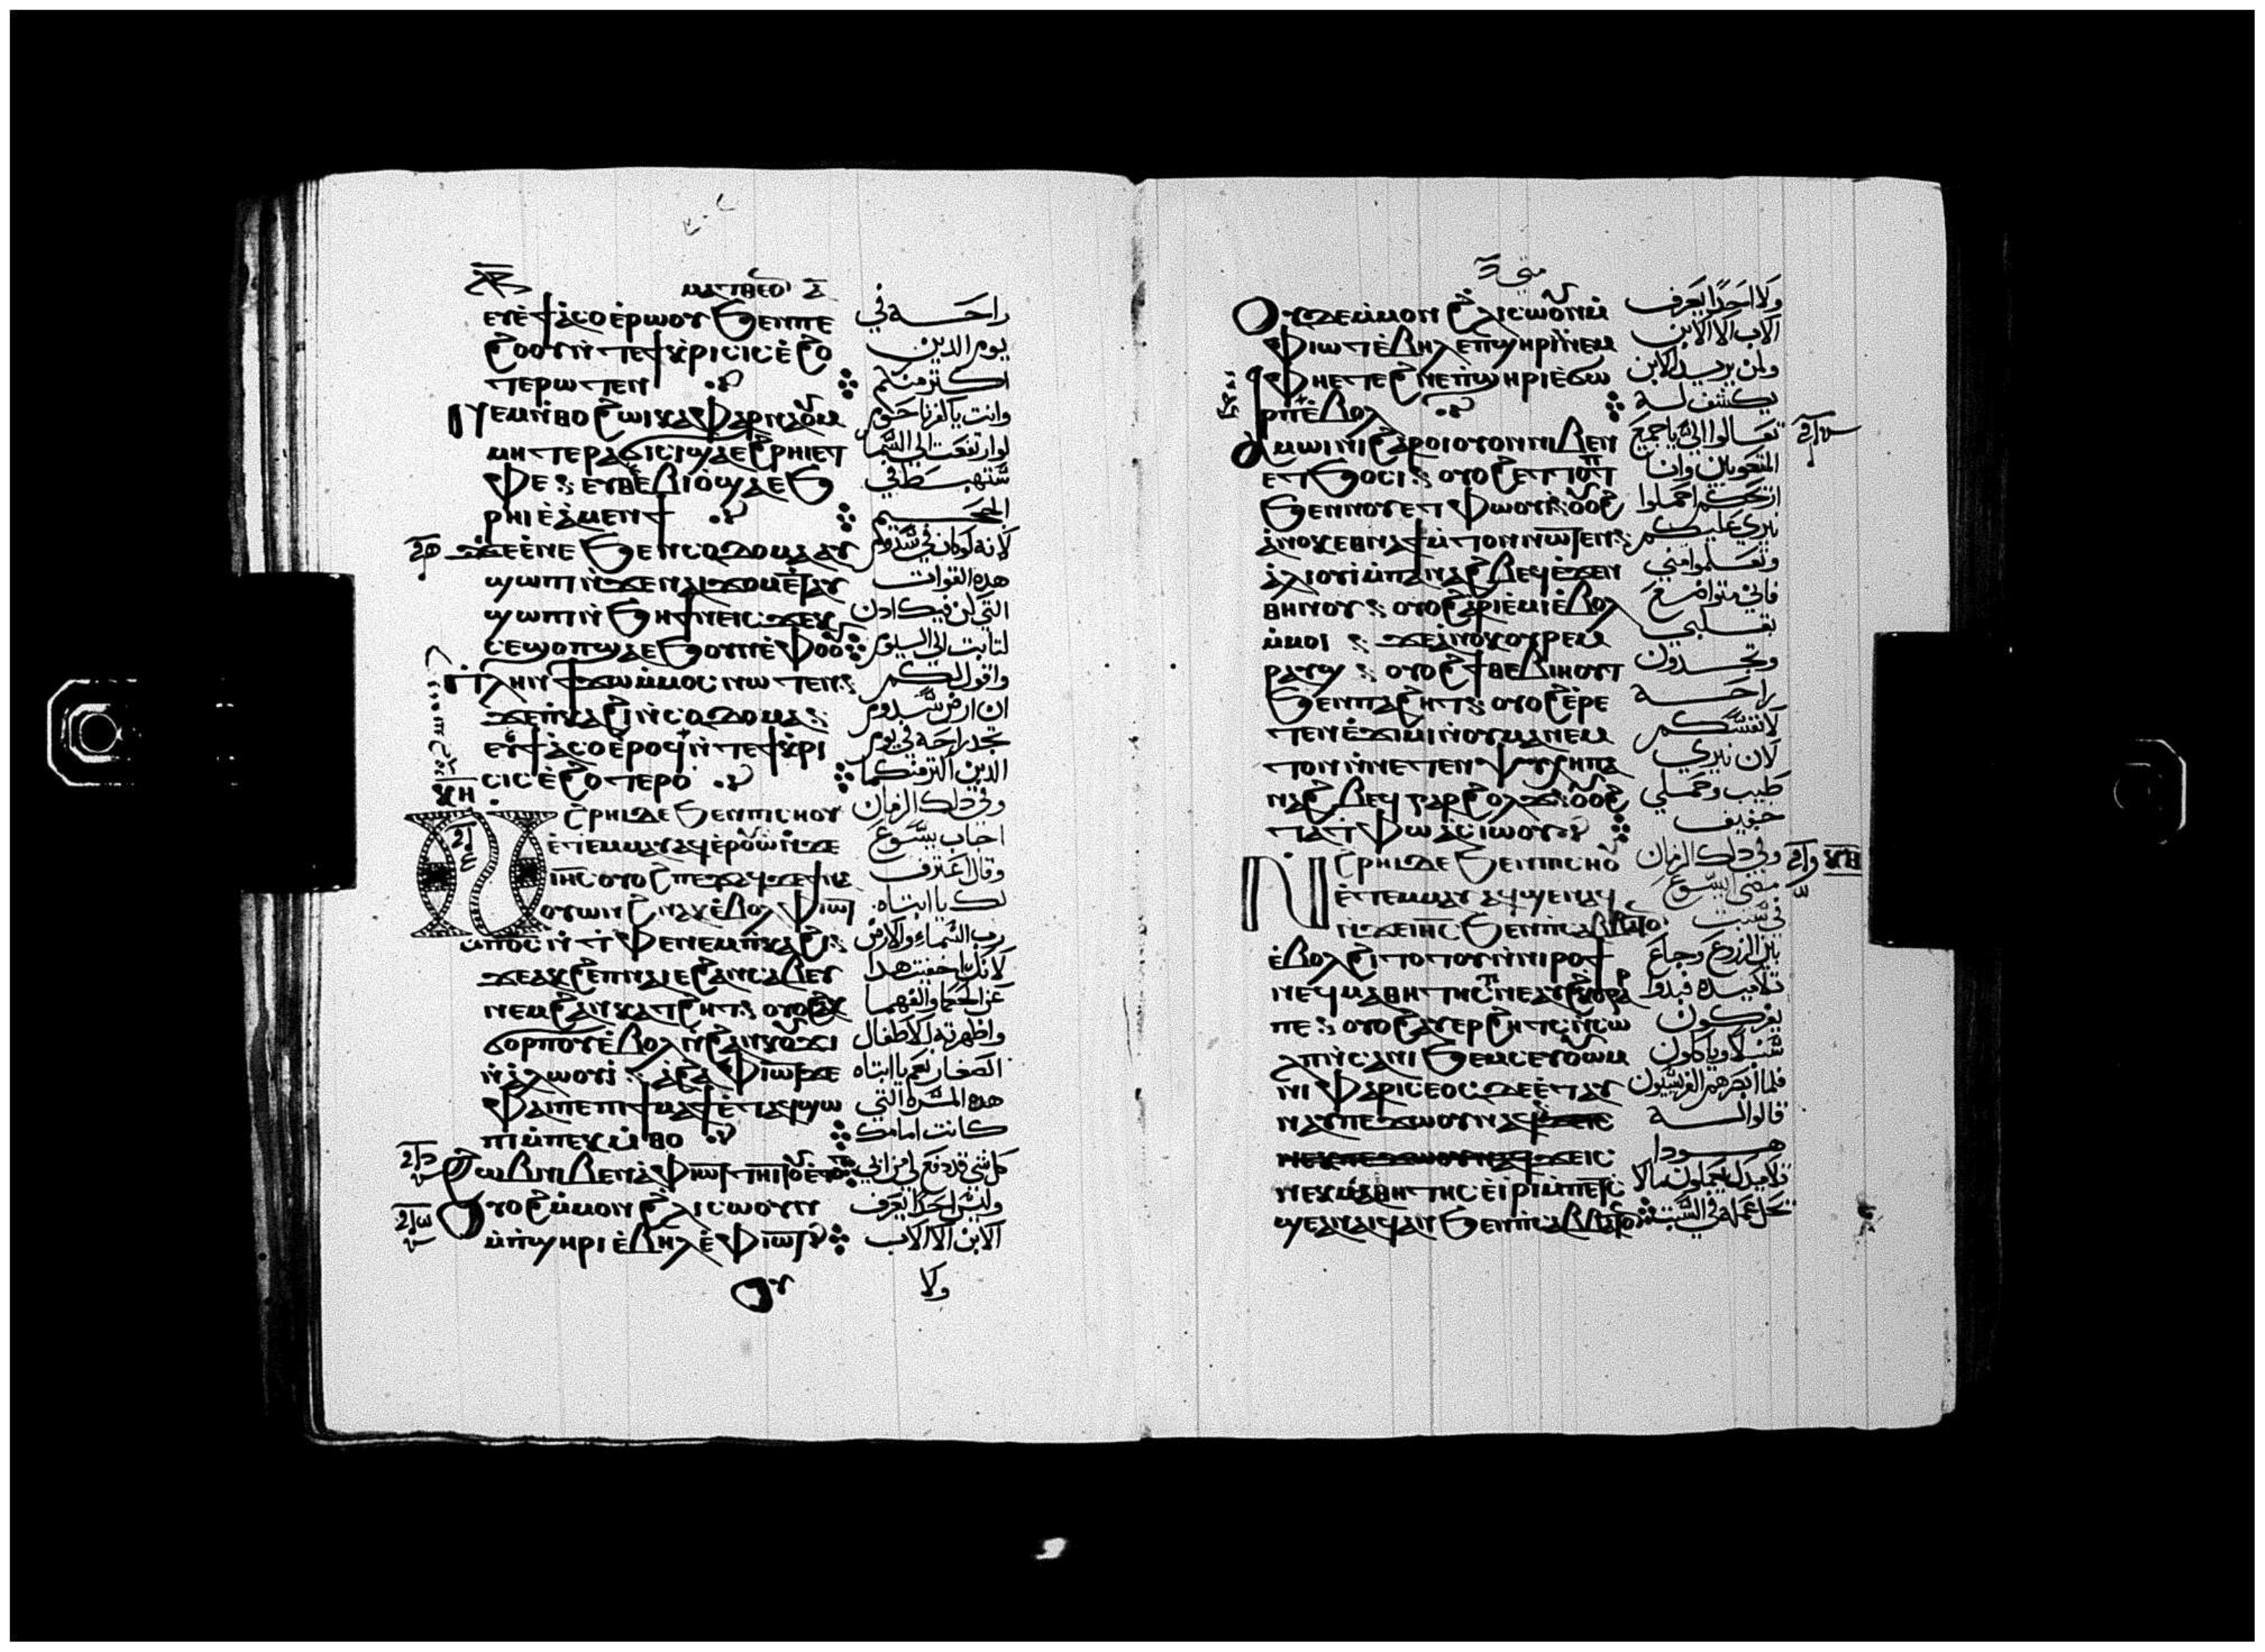 ⲙⲁⲧⲑⲉⲟⲛ
ⲉⲩⲉ̀ϯⲁ̀ⲥⲟ ⲉ̀ⲣⲱⲟⲩ ϧⲉⲛ ⲡⲉ
ϩⲟⲟⲩ ⲛ̀ⲧⲉ ϯⲕ̀ⲣⲓⲥⲓⲥ ⲉ̀ϩⲟ
ⲧⲉⲣⲱⲧⲉⲛ
ⲛⲉⲙ ⲛ̀ⲑⲟ ϩⲱⲓ ⲕⲁⲫⲁⲣⲛⲁⲟⲩⲙ
ⲙⲏ ⲧⲉⲣⲁϭⲓⲥⲓ ϣⲁ ⲉ̀ϩⲣⲏⲓ ⲉⲧ
ⲫⲉ ⲉⲩⲑⲉⲃⲓⲟ̀ ϣⲁ ⲉϧ
ⲣⲏⲓ ⲉ̀ⲁ̀ⲙⲉⲛϯ
ϫⲉ ⲉ̀ⲛⲉ ϧⲉⲛ ⲥⲟⲇⲟⲙⲁ ⲁⲩ
ϣⲱⲡⲓ ⲛ̀ϫⲉ ⲛⲁⲓϫⲟⲙ ⲉ̀ⲧⲁⲩ
ϣⲱⲡⲓ ⲛ̀ϧⲏϯ ⲛⲉⲓⲥϫⲉⲕ
ⲥⲉϣⲟⲡ ϣⲁ ⲉϧⲟⲩⲛ ⲉ̀ⲫⲟⲟⲩ
ⲡⲗⲏⲛ ϯϫⲱ ⲙ̀ⲙⲟⲥ ⲛⲱⲧⲉⲛ
ϫⲉ ⲡ̀ⲕⲁϩⲓ ⲛ̀ⲥⲟⲇⲟⲙⲁ
ⲉⲩϯⲁⲥⲟ ⲉ̀ⲣⲟϥ ⲛ̀ⲧⲉ ϯⲕ̀ⲣⲓ
ⲥⲓⲥ ⲉ̀ϩⲟⲧⲉⲣⲟ
ⲛ̀ϩ̀ⲣⲏⲓ ⲇⲉ ϧⲉⲛ ⲡⲓⲥⲛⲟⲩ
ⲉ̀ⲧⲉⲙⲙⲁⲩ ⲁϥⲉⲣⲟⲩⲱ̀ ⲛ̀ϫⲉ
ⲓⲏⲥ ⲟⲩⲟϩ ⲡⲉϫⲁϥ ϫⲉ ϯⲛⲁ
ⲟⲩⲱⲛϩ ⲛⲁⲕ ⲉ̀ⲃⲟⲗ ⲫⲓⲱⲧ
ⲙ̀ⲡⲟⲥ ⲛ̀ⲧ̀ⲫⲉ ⲛⲉⲙ ⲡ̀ⲕⲁϩⲓ
ϫⲉ ⲁⲕϩⲉⲡ ⲛⲁⲓ ⲉ ϩⲁⲛⲥⲁⲃⲉⲩ
ⲛⲉⲙ ϩⲁⲛⲕⲁⲧϩⲏⲧ ⲟⲩⲟϩ ⲁⲕ
ϭⲟⲣⲡⲟⲩ ⲉ̀ⲃⲟⲗ ⲛ̀ϩⲁⲛⲕⲟⲩϫⲓ
ⲛ̀ⲁ̀ⲗⲱⲟⲩⲓ̀ ⲁϩⲁ ⲫⲓⲱⲧ ϫⲉ
ⲫⲁⲓ ⲡⲉ ⲡⲓϯⲙⲁϯ ⲉ̀ⲧⲁϥϣⲱ
ⲡⲓ ⲙ̀ⲡⲉⲕⲙ̀ⲑⲟ
ϩⲱⲃ ⲛⲓⲃⲉⲛ ⲁ̀ ⲫⲓⲱⲧ ⲧⲏⲓⲧⲟⲩ ⲉ̀ⲧⲟⲧ
ⲟⲩⲟϩ ⲙ̀ⲙⲟⲛ ϩ̀ⲗⲓ ⲥⲱⲟⲩⲛ
ⲙ̀ⲡ̀ϣⲏⲣⲓ ⲉ̀ⲃⲏⲗ ⲉ̀ⲫⲓⲱⲧ
ⲟⲩ
راحة في
يوم الدين
اكثر منكم
وانت يا كفرناحوم
لو ارتفعت الى السما
ستهبط في
الجحيم
لانه لو كان في سدوم
هذه القوات
التي كن فيك ادن
لثابت الى اليوم
واقول لكم
ان ارض سدوم
تجد راحة في يوم
الدين اكثر منكم
وفي ذلك الزمان
اجاب يسوع
وقال اعترف
لك يا ابتاه
رب السماء والارض
لانك اخفيت هذا
عن الحكما والفهما
واظهرته للاطفال
الصغار نعم يا ابتاه
هذه المسرة التي
كانت امامك
كل شي قد دفع لي من ابي
وليس احدا يعرف
الابن الا الاب
ولا
متى
ⲟⲩⲇⲉ ⲙ̀ⲙⲟⲛ ϩ̀ⲗⲓ ⲥⲱⲟⲩⲛ ⲙ̀
ⲫⲓⲱⲧ ⲉ̀ⲃⲏⲗ ⲉⲡ̀ϣⲏⲣⲓ ⲛⲉⲙ
ⲫⲏ ⲉⲧⲉϩⲛⲉ ⲡ̀ϣⲏⲣⲓ ⲉ̀ϭⲱ
ⲣⲡ ⲉ̀ⲃⲟⲗ
ⲁⲙⲱⲓⲛⲓ ϩⲁⲣⲟⲓ ⲟⲩⲟⲛ ⲛⲓⲃⲉⲛ
ⲉⲧϧⲟⲥⲓ ⲟⲩⲟϩ ⲉⲧϩⲟⲣϣ
ϧⲉⲛ ⲛⲟⲩⲉⲧⲫⲱⲟⲩⲓ ⲟⲩⲟϩ
ⲁ̀ⲛⲟⲕ ⲉⲑⲛⲁϯⲙ̀ⲧⲟⲛ ⲛⲱⲧⲉⲛ
ⲁ̀ⲗⲓⲟⲩⲓ̀ ⲙ̀ⲡⲁⲛⲁϩⲃⲉϥ ⲉ̀ϫⲉⲛ
ⲑⲏⲛⲟⲩ ⲟⲩⲟϩ ⲁⲣⲓⲉ̀ⲙⲓ ⲉ̀ⲃⲟⲗ
ⲙ̀ⲙⲟⲓ ϫⲉ ⲁ̀ⲛⲟⲕ ⲟⲩⲣⲉⲙ
ⲣⲁⲩϣ ⲟⲩⲟϩ ϯⲑⲉⲃⲓⲏⲟⲩⲧ
ϧⲉⲛ ⲡⲁϩⲏⲧ ⲟⲩⲟϩ ⲉ̀ⲣⲉ
ⲧⲉⲛⲉ̀ϫⲓⲙⲓ ⲛ̀ⲟⲩⲙⲁⲛⲉⲙ
ⲧⲟⲛ ⲛ̀ⲛⲉⲧⲉⲛⲯⲩⲭⲏ ⲡⲁ
ⲛⲁϩⲃⲉϥ ⲅⲁⲣ ϩⲟⲗϫ ⲟⲩⲟϩ
ⲧⲁⲉⲧⲫⲱ ⲁⲥⲓⲱⲟⲩ
ⲛ̀ϩ̀ⲣⲏⲓ ⲇⲉ ϧⲉⲛ ⲡⲓⲥⲛⲟⲩ
ⲉ̀ⲧⲉⲙⲙⲁⲩ ⲁϥϣⲉⲛⲁϥ
ⲛ̀ϫⲉ ⲓⲏⲥ ϧⲉⲛ ⲡ̀ⲥⲁⲃⲃⲁⲧⲟⲛ
ⲉ̀ⲃⲟⲗ ϩⲓⲧⲟⲧⲟⲩ ⲛ̀ⲛⲓⲣⲟϯ
ⲛⲉϥⲙⲁⲑⲏⲧⲏⲥ ⲛⲉ ⲁⲩϩⲕⲟ
ⲡⲉ ⲟⲩⲟϩ ⲁⲩⲉⲣϩⲏⲧⲥ ⲛ̀ⲥⲱ
ⲗⲡ ⲛ̀ϧⲁⲛϧⲉⲙⲥ ⲉⲟⲩⲱⲙ
ⲛⲓⲫⲁⲣⲓⲥⲉⲟⲥ ⲇⲉ ⲉ̀ⲧⲁⲩ
ⲛⲁⲩ ⲡⲉϫⲱⲟⲩ ⲛⲁϥ ϫⲉ ⲓⲥ
ⲛⲉⲕⲙⲁⲑⲏⲧⲏⲥ ⲉ̀ⲓⲣⲓ ⲙ̀ⲡⲉⲧⲥ̀
ϣⲉ ⲁⲛ ⲁⲓϥ ⲁⲛ ϧⲉⲛ ⲡ̀ⲥⲁⲃⲃⲁⲧⲟⲛ
ولا احدا يعرف
الاب الا الابن
ولمن يريد الابن
يكشف له
تعالوا الي يا جميع
المتعوبين وانا
نيري عليكم
وتعلموا مني
فاني متواضع
بقلبي
وتجدون
راحة
لانفسكم
لان نيري
طيب وحملي
خفيف
وفي ذلك الزمان
مضى يسوع
في سبت
بين الزرع وجاع
تلاميذه فبدوا
يفركون
سنبلا وياكلون
فلما ابصرهم الفريسيون
قالوا له
هودا
تلاميدك يعملون ما لا
يحل عمله في السبت